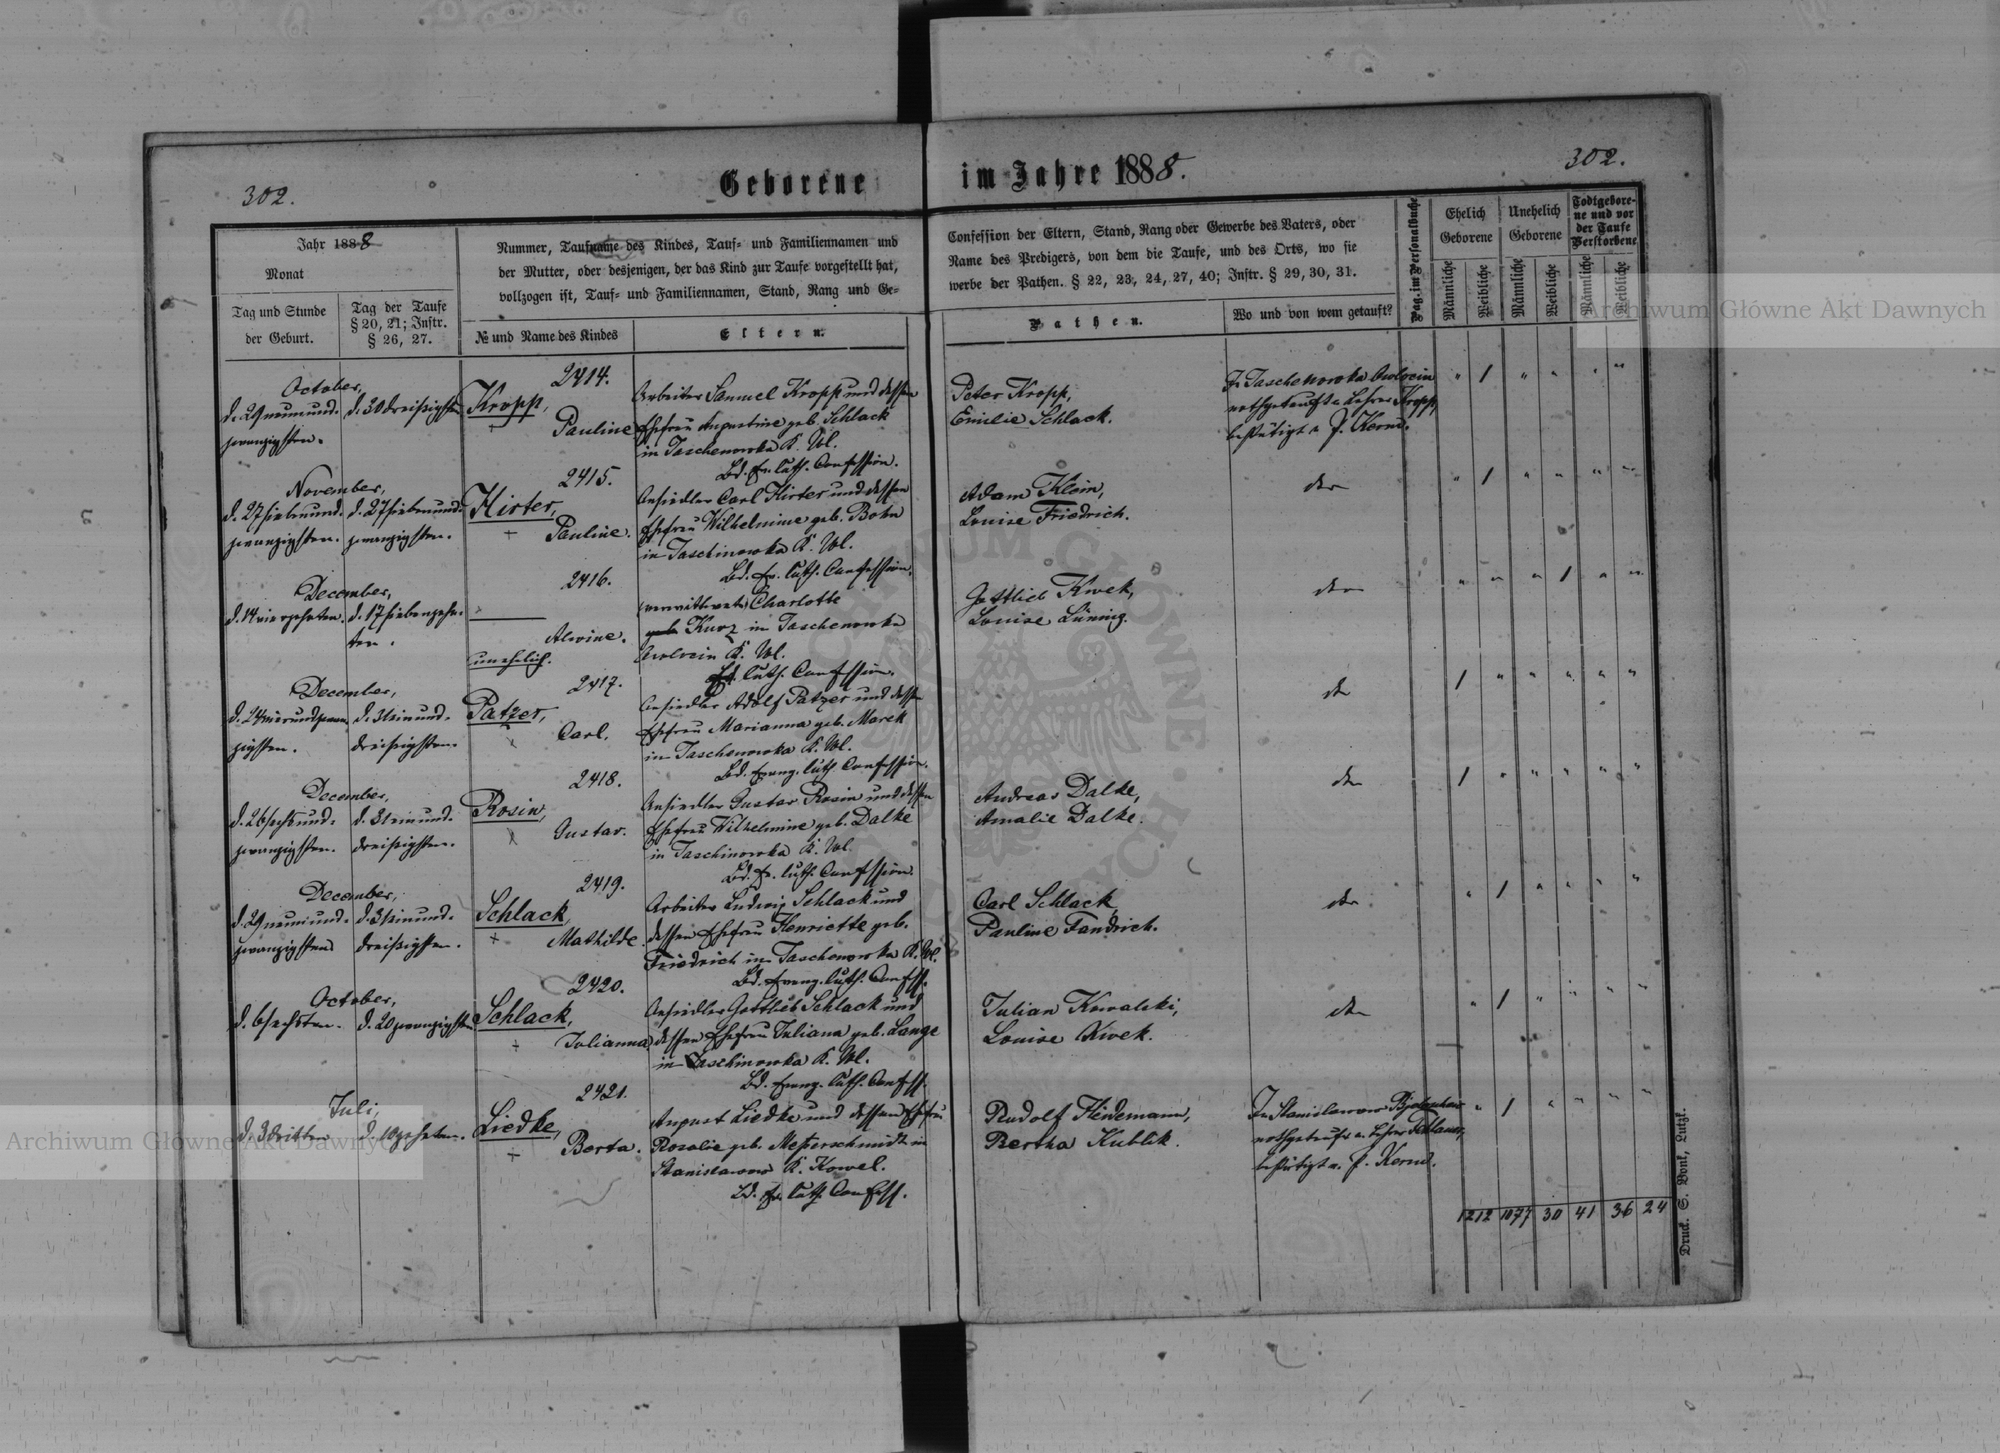 302.
Geborene im Jahre 1888.
302.
Jahr 1888
Monat
Tag und Stunde
der Geburt.
Tag der Taufe
§ 20, 21; Instr.
§ 26, 27.
Nummer, Taufname des Kindes, Tauf- und Familiennamen und
der Mutter, oder desjenigen, der das Kind zur Taufe vorgestellt hat,
vollzogen ist, Tauf- und Familiennamen, Stand, Rang und Ge-
№ und Name des Kindes
Eltern.
Confession der Eltern, Stand, Rang oder Gewerbe des Vaters, oder
Name des Predigers, von dem die Taufe, und des Orts, wo sie
werbe der Pathen. § 22, 23, 24, 27, 40; Instr. § 29, 30, 31.
Pathen.
Wo und von wem getauft?
Pag. im Personalbuche
Ehelich
Geborene
Unehelich
Geborene
Todtgebore-
ne und vor
der Taufe
Verstorbene
Männliche
Weibliche
Männliche
Weibliche
Männliche
Weibliche
October,
d. 29 neunund-
zwanzigsten.
d. 30 dreißigsten
2414.
Kropp,
Pauline
Arbeiter Samuel Kropp und dessen
Ehefrau Augustine geb. Schlack
in Taschenowka K. Wl.
Bd. Ev. luth. Confession.
Peter Kropp,
Emilie Schlack.
In Taschenowka
nothgetauft v. Lehrer Kropp,
bestätigt v. P. Kerm.
" 1 " " " "
November,
d. 27 siebenund-
zwanzigsten.
d. 27 siebenund-
zwanzigsten.
2415.
Hirter,
Pauline.
Ansiedler Carl Hirter und dessen
Ehefrau Wilhelmine geb. Bohn
in Taschinowka K. Wl.
Bd. Ev. luth. Confession.
Adam Klein,
Louise Friedrich.
dto
" 1 " " " "
December,
d. 14 vierzehnten.
d. 17 siebenzehn-
ten.
2416.
Alwine.
unehelich.
verwittwete Charlotte
geb. Kurz in Taschenowka
K. Wl.
luth. Confession.
Gottlieb Kwek,
Louise Lüning.
dto
" " " 1 " "
December,
d. 24 vierundzwan-
zigsten.
d. 31 einund-
dreißigsten.
2417.
Patzer,
Carl.
Ansiedler Adolf Patzer und dessen
Ehefrau Marianna geb. Marek
in Taschenowka K. Wl.
Bd. Evang. luth. Confession.
dto
1 " " " " "
December,
d. 26 sechsund-
zwanzigsten.
d. 31 einund-
dreißigsten.
2418.
Rosin,
Gustav.
Ansiedler Gustav Rosin und dessen
Ehefrau Wilhelmine geb. Dalke
in Taschinowka K. Wl.
Bd. Ev. luth. Confession
Andreas Dalke,
Amalie Dalke.
dto
1 " " " " "
December,
d. 29 neunund-
zwanzigsten
d. 31 einund-
dreißigsten.
2419.
Schlack,
Mathilde.
Arbeiter Ludwig Schlack und
dessen Ehefrau Henriette geb.
Friedrich in Taschenowka K. Wl.
Bd. Evang. luth. Confess.
Carl Schlack,
Pauline Fandrich.
dto
" 1 " " " "
October,
d. 6 sechsten.
d. 20 zwanzigsten
2420.
Schlack,
Julianna,
Ansiedler Gottlieb Schlack und
dessen Ehefrau Juliana geb. Lange
in Taschinowka K. Wl.
Bd. Evang. luth. Confess.
Julian Kowalski,
Louise Kwek.
dto
" 1 " " " "
Juli,
d. 3 dritten
d. 10 zehnten.
2421.
Liedke,
Berta.
August Liedke und dessen Ehefrau
Rosalie geb. Messerschmidt in
Stanislawow K. Kowel.
Bd. Ev. luth. Confess.
Rudolf Heidemann,
Bertha Kublik.
In Stanislawow
nothgetauft v. Lehrer
bestätigt v. P. Kerm.
" 1 " " " "
1212 1077 30 41 36 24
Druck. S. Bonk, Lutzk.
Archiwum Główne Akt Dawnych
Archiwum Główne Akt Dawnych